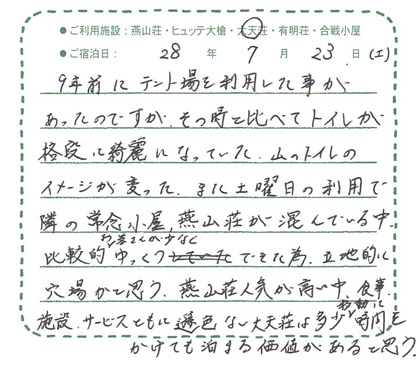 ●ご利用施設：燕山荘・ヒュッテ大槍・大天荘・有明荘・合戦小屋
●ご宿泊日： 28 年 7 月 23 日(土)
9年前にテント場を利用した事が
あったのですが、その時と比べてトイレが
格段に綺麗になっていた。山のトイレの
イメージが変った。また土曜日の利用で
隣の常念小屋、燕山荘が混んでいる中、
お客さんの少なく
比較的ゆっくりできた為、立地的に
穴場かと思う。燕山荘人気が高い中、食事、
施設、サービスともに遜色ない大天荘は多少移動に時間を
かけても泊まる価値があると思う。